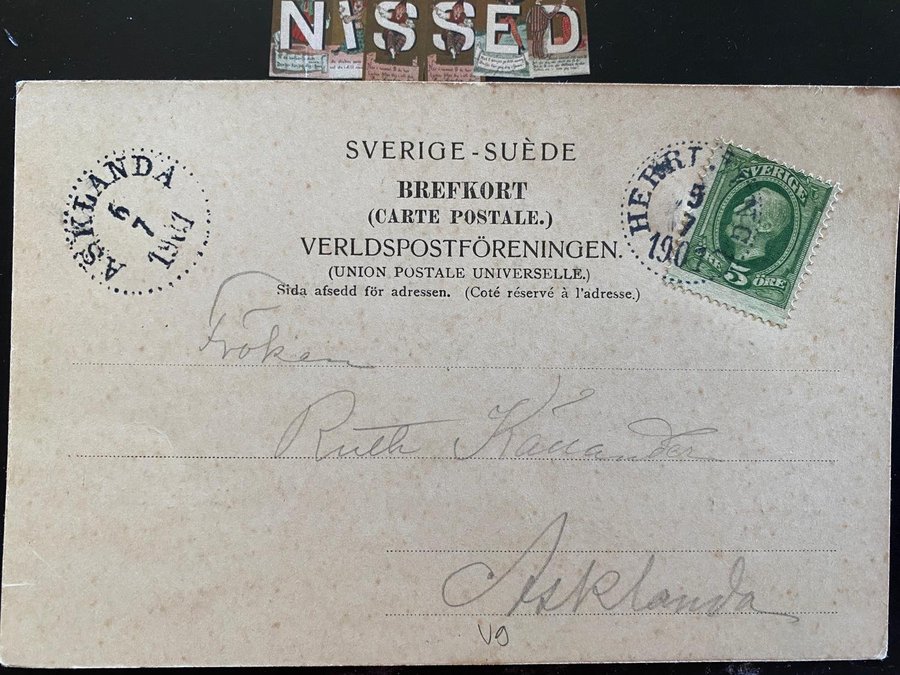 NISSED
SVERIGE-SUÈDE
BREFKORT
(CARTE POSTALE.)
VERLDSPOSTFÖRENINGEN.
(UNION POSTALE UNIVERSELLE.)
Sida afsedd för adressen. (Coté réservé à l'adresse.)
ASKLANDA
7
1901
SVERIGE
5
ÖRE
Fröken
Ruth
Asklanda
Vg